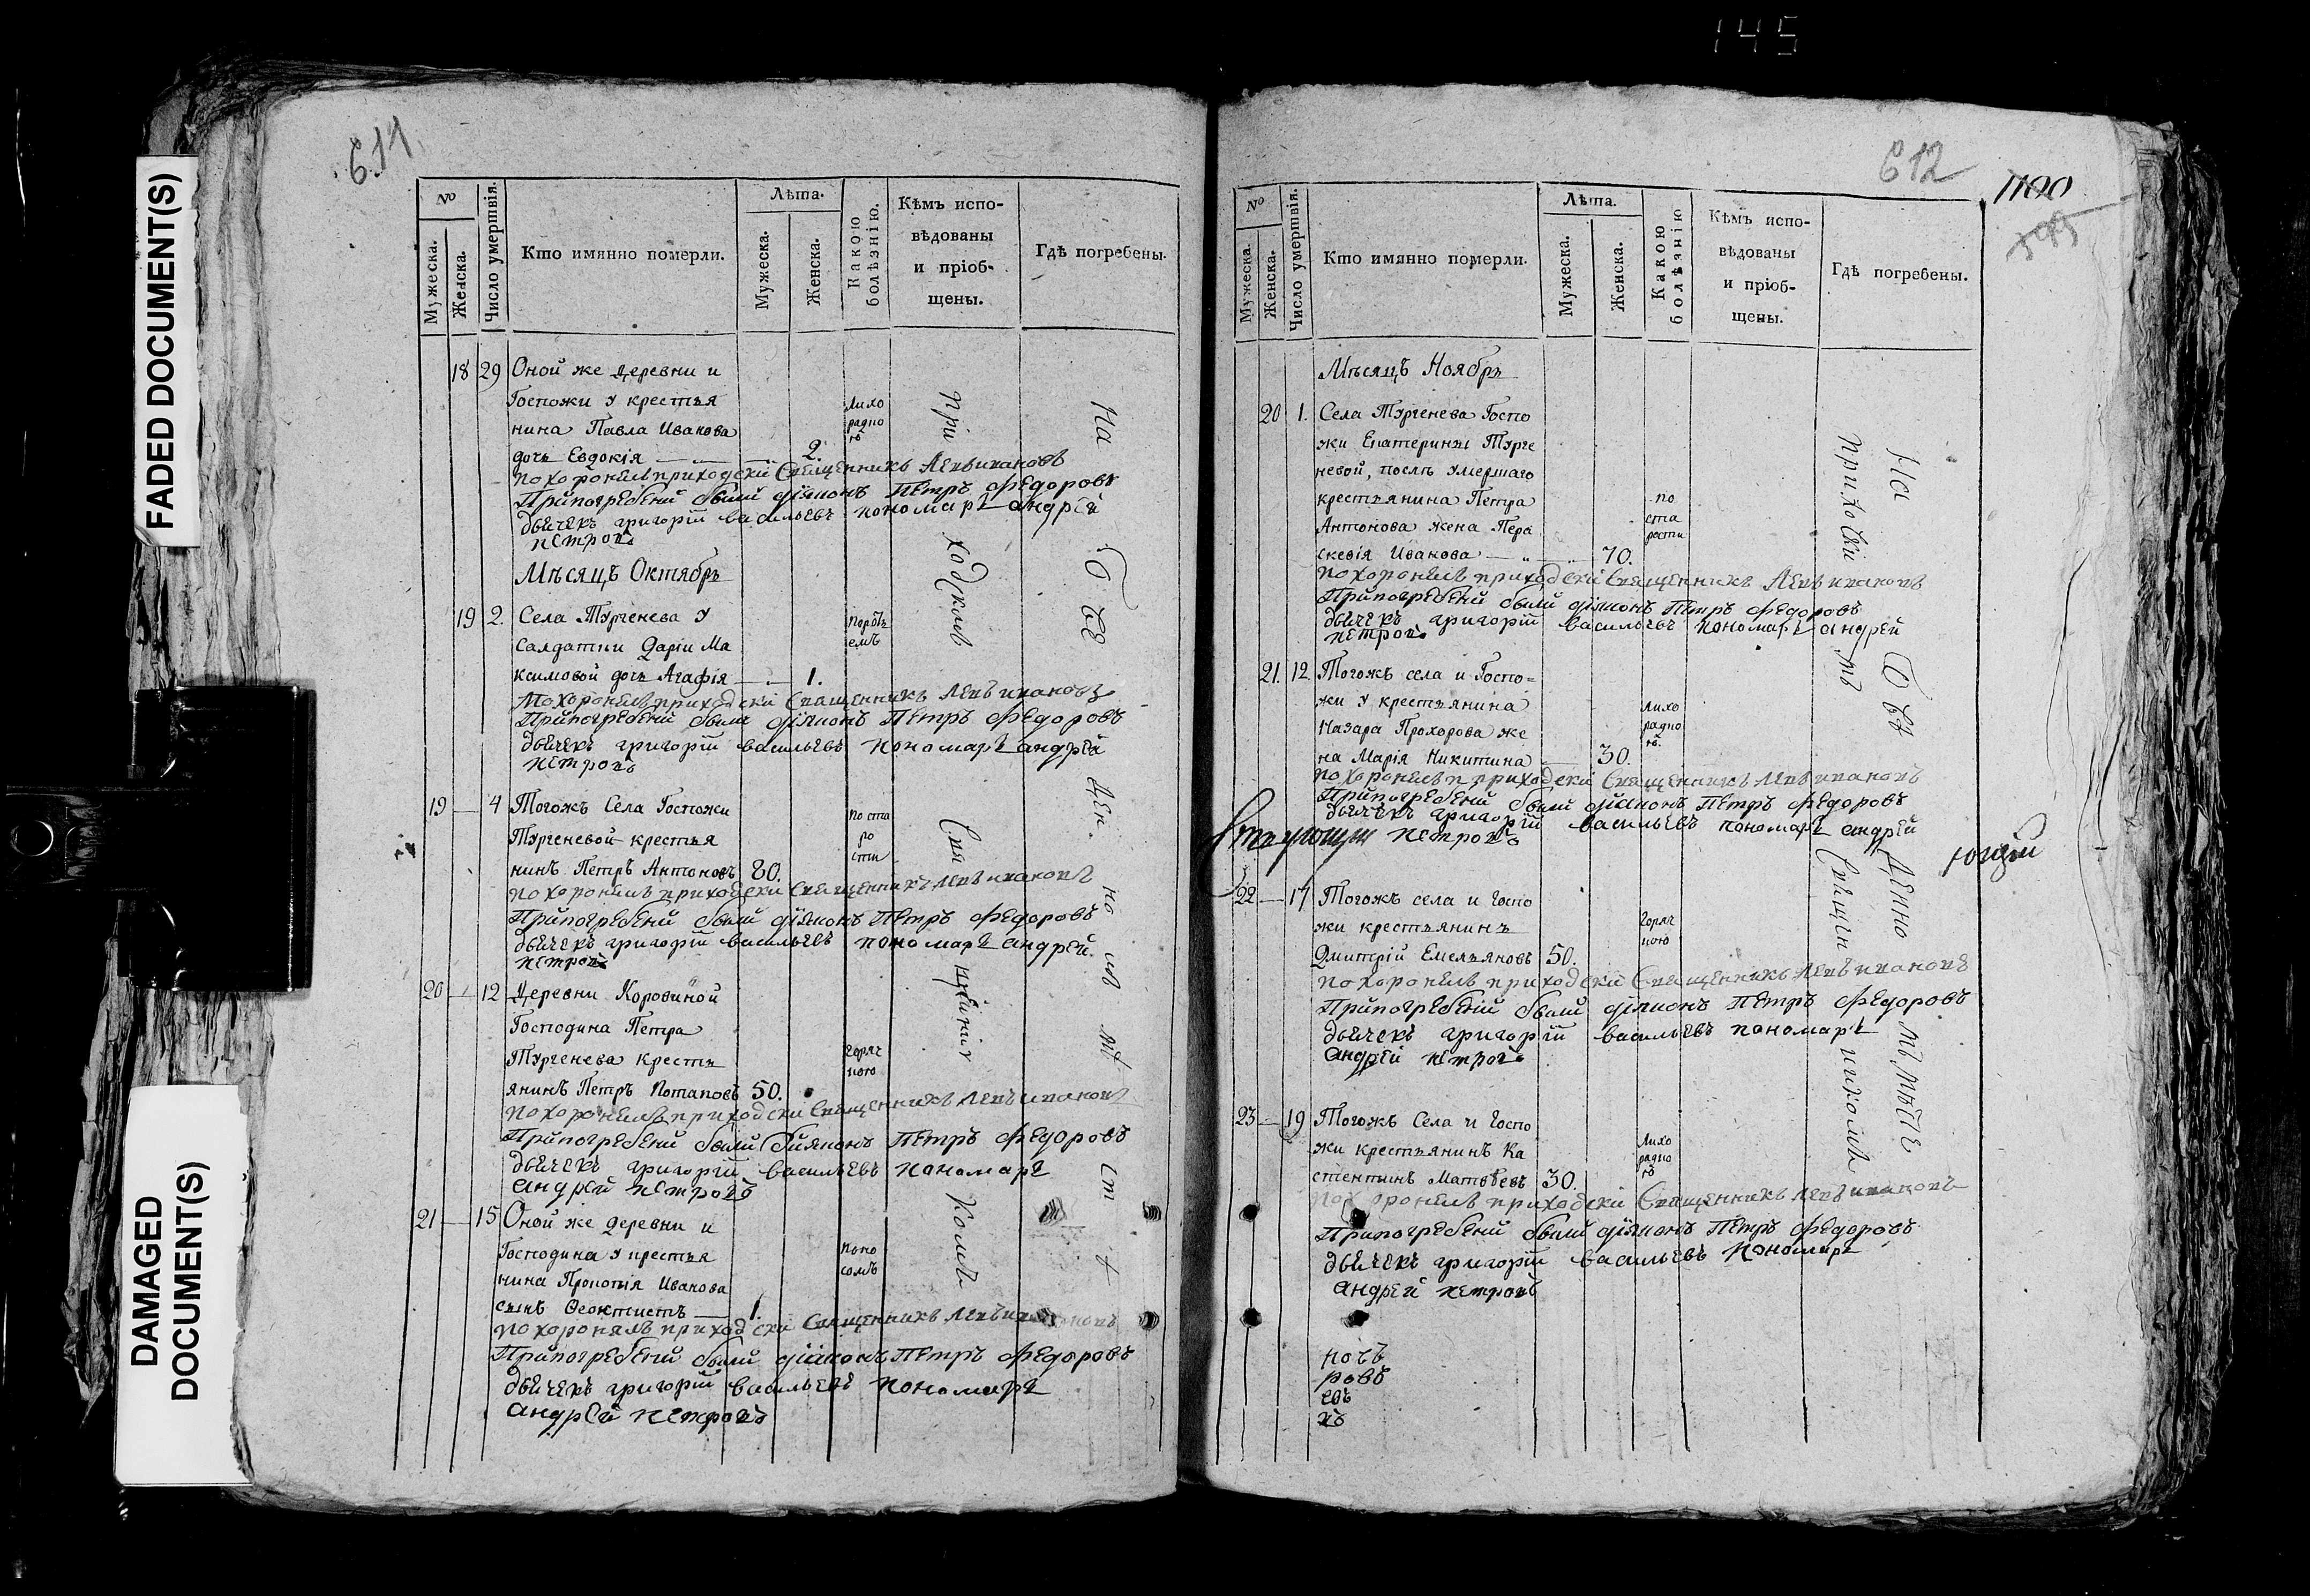 145
FADED DOCUMENT(S)
DAMAGED DOCUMENT(S)
611
№
Мужеска.
Женска.
Число умертвія.
Кто имянно померли.
Лѣта.
Мужеска.
Женска.
Какою болѣзнію.
Кѣмъ испо-
вѣдованы
и пріоб-
щены.
Гдѣ погребены.
18 29 Оной же деревни и
Госпожи у крестья
нина Павла Иванова
дочь Евдокія 2.
лихо
радко
ю
похоронилъ приходскій Священникъ Левъ Ивановъ
Припогребеніи были діяконъ Петръ Федоровъ
дьячекъ григорій васильевъ пономарь андрей
петровъ
Мѣсяцъ Октябрь
19 2. Села Тургенева у
Салдатки Дарьи Ма
ксимовой дочь Агафія 1.
похоронилъ приходскій Священникъ Левъ Ивановъ
Припогребеніи были діяконъ Петръ Федоровъ
дьячекъ григорій васильевъ пономарь андрей
петровъ
19 4 Тогожъ Села Госпожи
Тургеневой крестья
нинъ Петръ Антоновъ 80.
по ста
ро
сти
похоронилъ приходскій Священникъ Левъ Ивановъ
Припогребеніи были діяконъ Петръ Федоровъ
дьячекъ григорій васильевъ пономарь андрей
петровъ
20 12 Деревни Коровиной
Господина Петра
Тургенева кресть
янинъ Петръ Потаповъ 50.
горяч
кою
похоронилъ приходскій Священникъ Левъ Ивановъ
Припогребеніи были діяконъ Петръ Федоровъ
дьячекъ григорій васильевъ пономарь
андрей петровъ
21 15 Оной же деревни и
Господина у крестья
нина Прокопія Иванова
сынъ Феоктистъ 1.
поно
сомъ
похоронялъ приходскій Священникъ Левъ Ивановъ
Припогребеніи были діяконъ Петръ Федоровъ
дьячекъ григорій васильевъ пономарь
андрей петровъ
При
ходскимъ
Свя
щенни
комъ
На
612
1100
№
Мужеска.
Женска.
Число умертвія.
Кто имянно померли.
Лѣта.
Мужеска.
Женска.
Какою болѣзнію
Кѣмъ испо-
вѣдованы
и пріоб-
щены.
Гдѣ погребены.
Мѣсяцъ Ноябрь
20 1. Села Тургенева Госпо
жи Екатерины Турге
невой, послѣ умершаго
крестьянина Петра
Антонова жена Пера
скевія Иванова 70.
по
ста
рости
похоронилъ приходскій Священникъ Левъ Ивановъ
Припогребеніи были діяконъ Петръ Федоровъ
дьячекъ григорій васильевъ пономарь андрей
петровъ
21. 12. Тогожъ села и Госпо=
жи у крестьянина
Назара Прохорова же
на Марія Никитина 30.
лихо
радко
ю.
похоронилъ приходскій Священникъ Левъ Ивановъ
Припогребеніи были діяконъ Петръ Федоровъ
дьячекъ григорій васильевъ пономарь андрей
петровъ
22 17 Тогожъ села и Госпо
жи крестьянинъ
Дмитрій Емельяновъ 50.
горяч
кою
похоронилъ приходскій Священникъ Левъ Ивановъ
Припогребеніи были діяконъ Петръ Федоровъ
дьячекъ григорій васильевъ пономарь
андрей петровъ
23 19 Тогожъ Села и Госпо
жи крестьянинъ Ка
стентинъ Матвѣевъ 30.
Лихо
радко
ю
похоронилъ приходскій Священникъ Левъ Ивановъ
Припогребеніи были діяконъ Петръ Федоровъ
дьячекъ григорій васильевъ пономарь
андрей петровъ
На